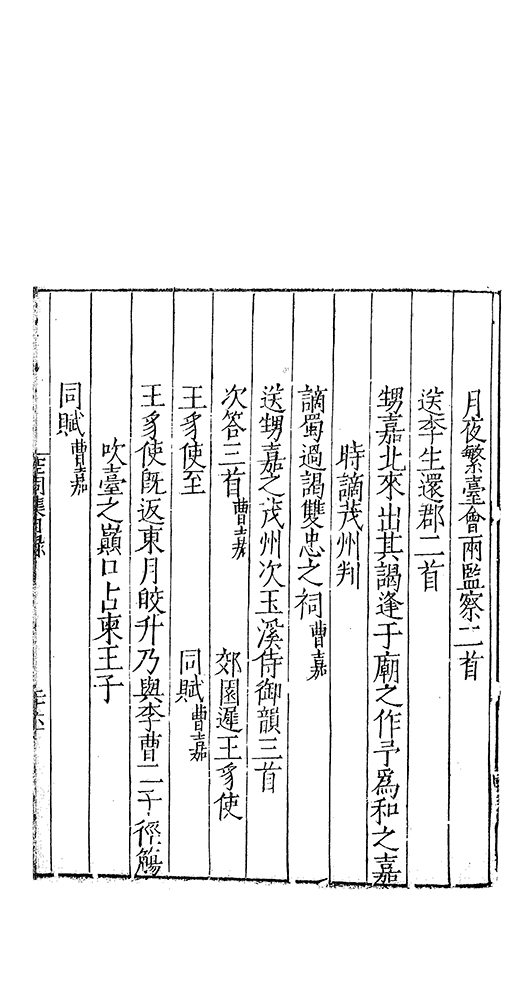 月夜繁臺會兩監察二首
送李生還郡二首
甥嘉北來出其謁逢于廟之作予爲和之嘉
時謫茂州判
謫蜀過謁雙忠之祠曹嘉
送甥嘉之茂州次玉溪侍御韻三首
次答三首曹嘉 郊園遲王豸使
王豸使至 同賦曹嘉
王豸使旣返東月皎升乃與李曹二子徑觴
吹臺之巔口占柬王子
同賦曹嘉
空同集目錄